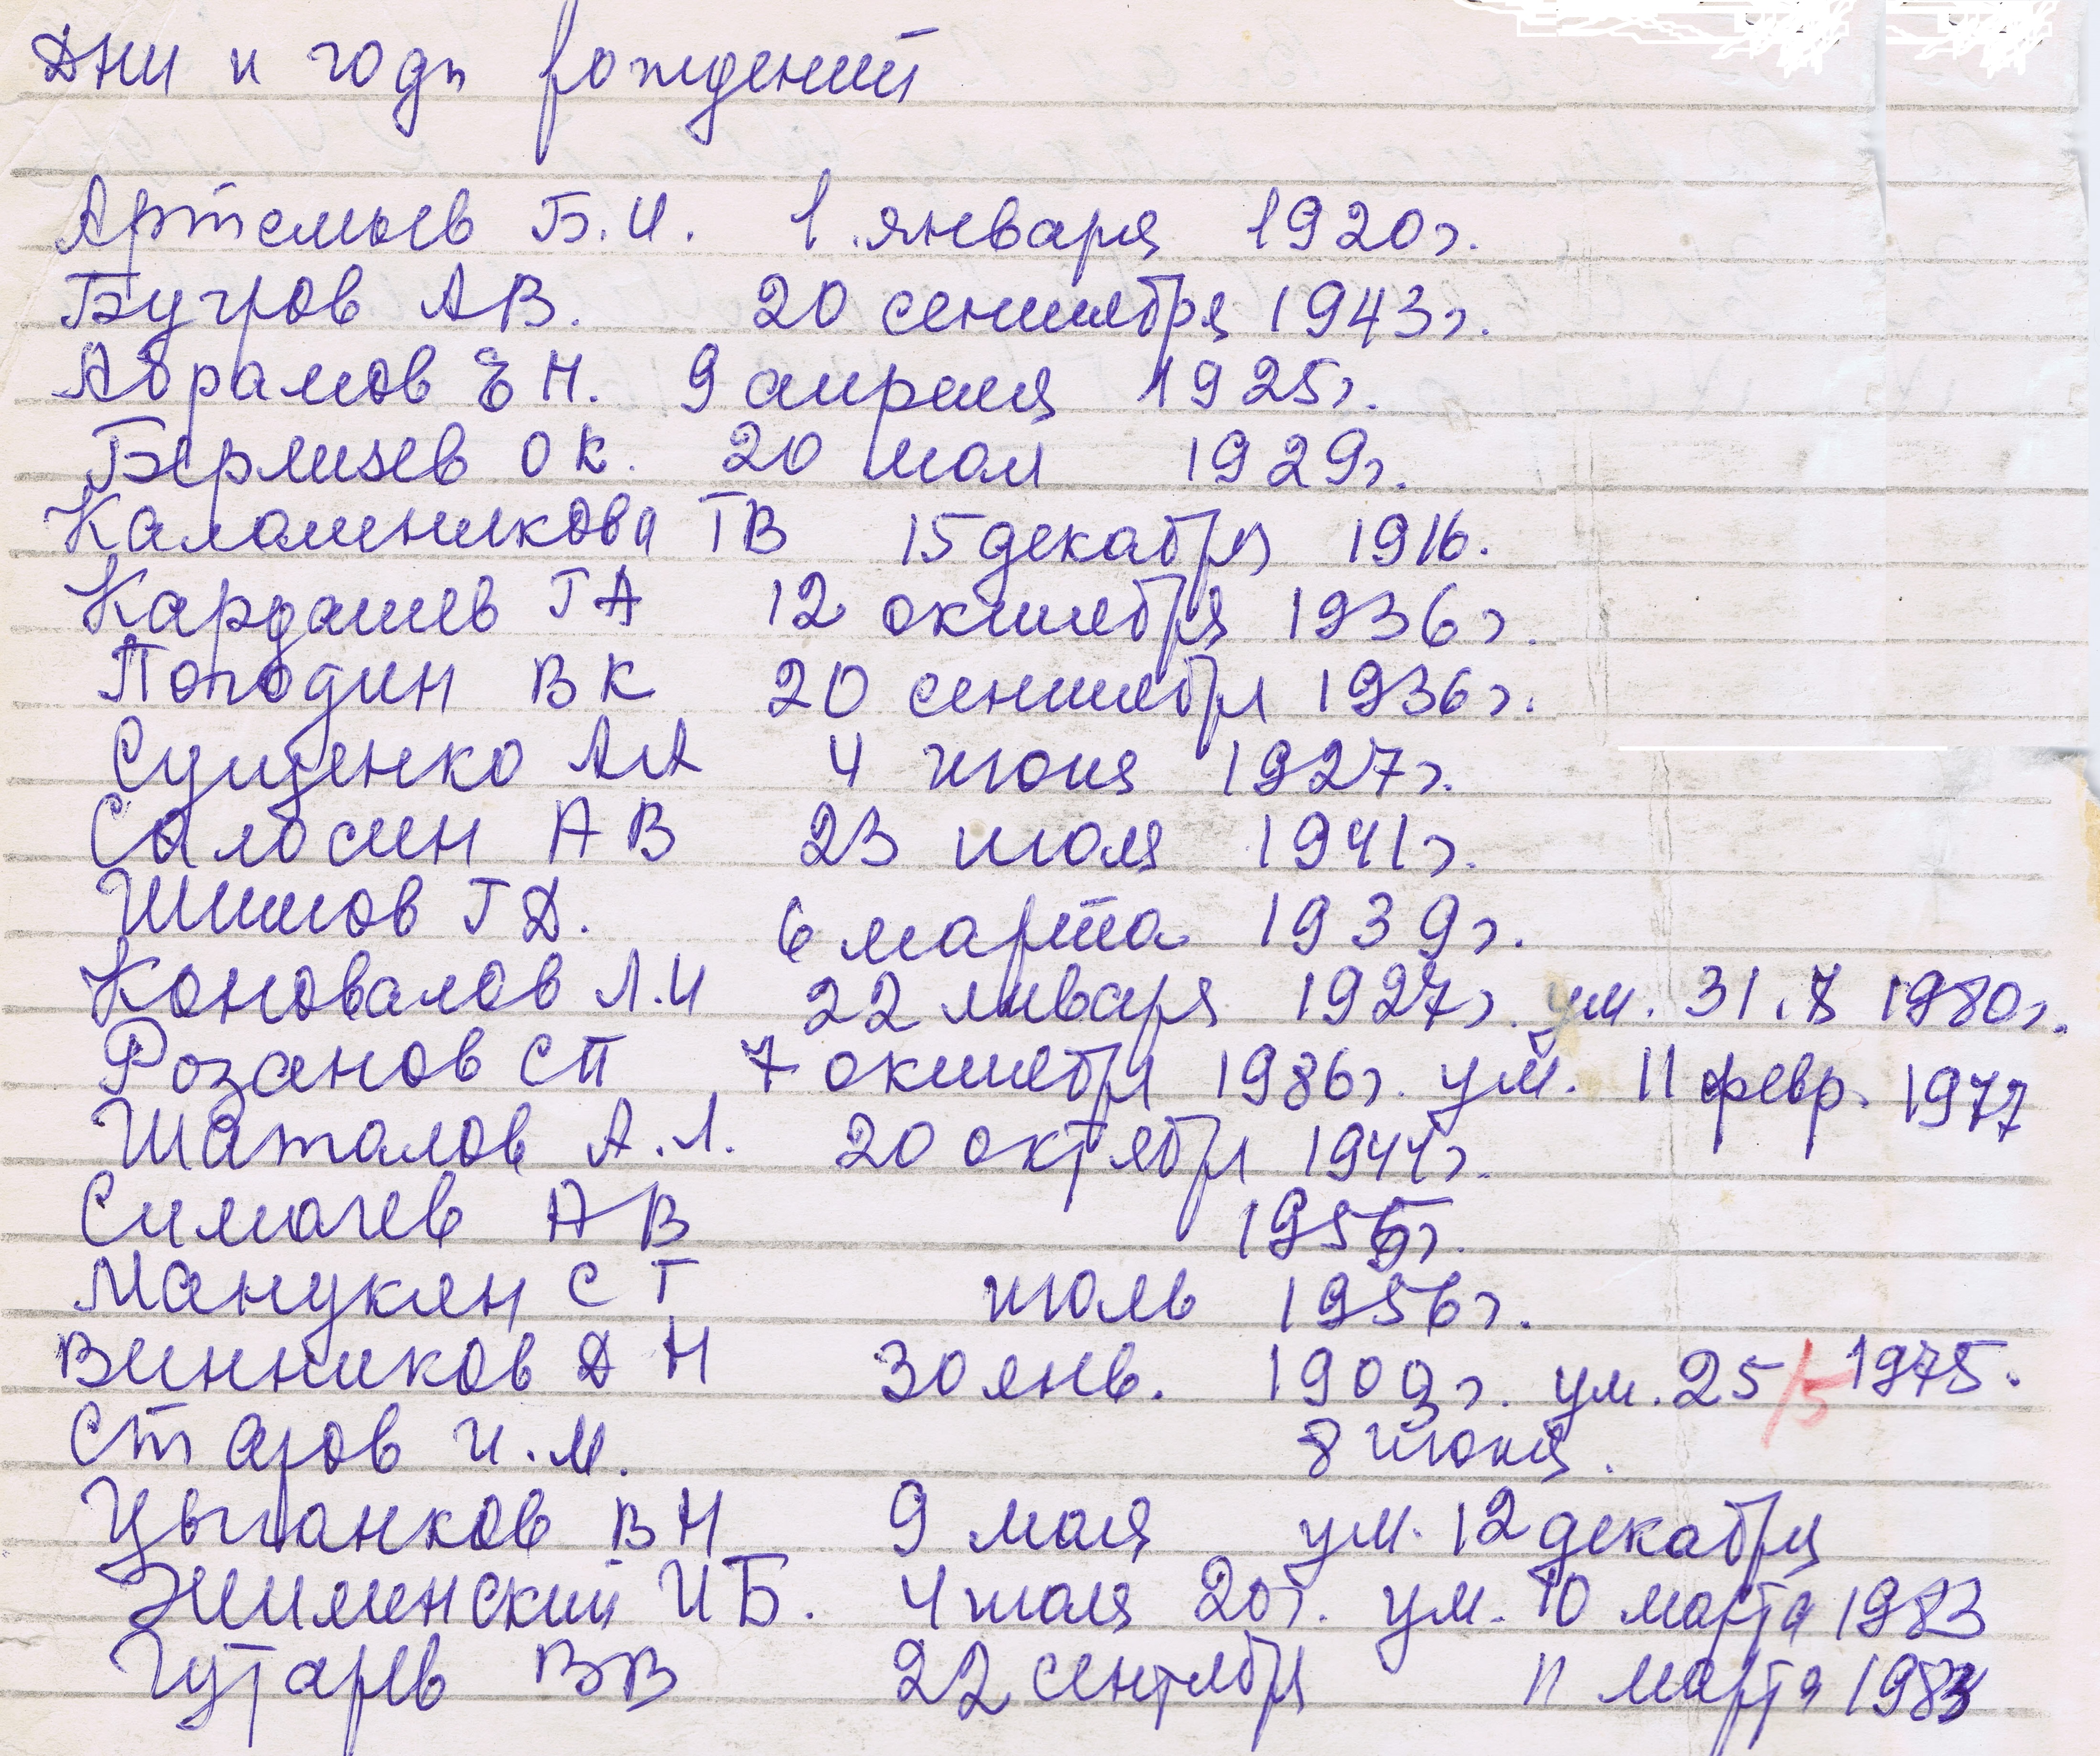 Дни и годы рождений
Артемьев Б.И. 1 января 1920г.
Бугров АВ. 20 сентября 1943г.
Абрамов ЕН. 9 апреля 1925г.
Берлизев ОК. 20 мая 1929г.
Каламеникова ТВ 15 декабря 1916.
Кардашев ГА 12 октября 1936г.
Погодин ВК 20 сентября 1936г.
Сущенко АА 4 июня 1927г.
Салосин АВ 23 июля 1941г.
Шишов ГД. 6 марта 1939г.
Коновалов Л.И 22 января 1927г. ум. 31.8 1980г.
Розанов СП 7 октября 1986г. ум. 11 февр. 1977
Шаталов А.Л. 20 октября 1944г.
Симачев АВ 1956г.
Манукян СТ июль 1956г.
Винников ДН 30 янв. 1909г. ум. 25/5 1975.
Старов И.М. 8 июня.
Цыганков ВН 9 мая ум. 12 декабря
Жилинский ИБ. 4 июля 20г. ум. 10 марта 1983
Гутарев ВВ 22 сентября 11 марта 1983